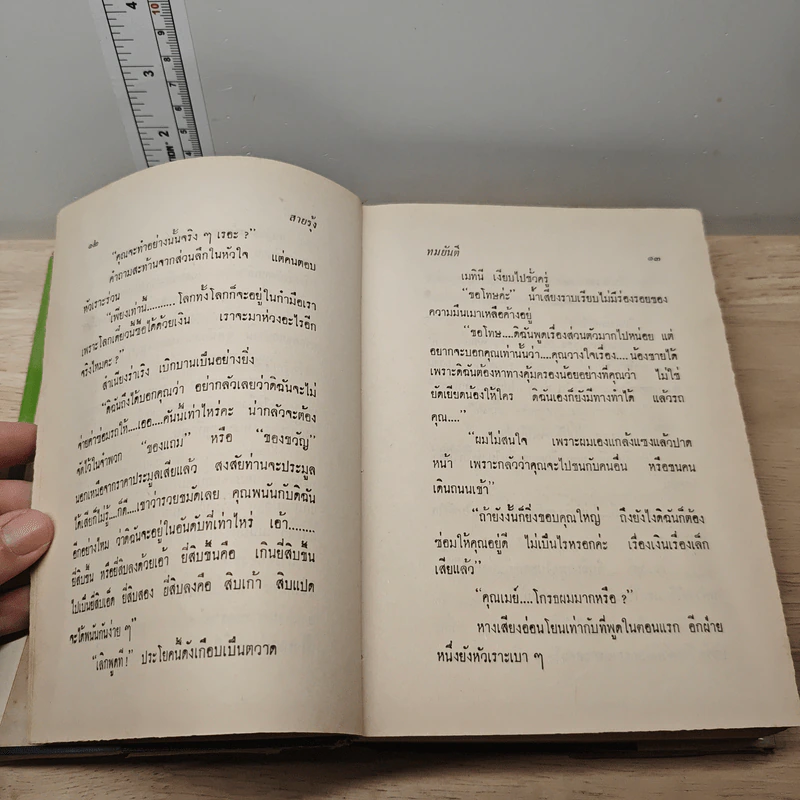 ๑๒
สายรุ้ง
“คุณจะทำอย่างนั้นจริง ๆ เรอะ ?”
คำถามสะท้านจากส่วนลึกในหัวใจ แต่คนตอบ
หัวเราะร่วน
“เพียงเท่านี้..........โลกทั้งโลกก็จะอยู่ในกำมือเรา
เพราะโลกเดี๋ยวนี้ซื้อได้ด้วยเงิน เราจะมาห่วงอะไรอีก
จริงไหมคะ ?”
สำเนียงร่าเริง เบิกบานเป็นอย่างยิ่ง
“ดิฉันถึงได้บอกคุณว่า อย่ากลัวเลยว่าดิฉันจะไม่
จ่ายค่าซ่อมรถให้....เออ....คันนี้เท่าไหร่คะ น่ากลัวจะต้อง
จัดไว้ในจำพวก “ของแถม” หรือ “ของขวัญ”
นอกเหนือจากราคาประมูลเสียแล้ว สงสัยท่านจะประมูล
ได้เสียก็ไม่รู้....ก็ดี....เขาว่ารวยชมัดเลย คุณพนันกับดิฉัน
อีกอย่างไหม ว่าดิฉันจะอยู่ในอันดับที่เท่าไหร่ เอ้า........
ยี่สิบขึ้น หรือยี่สิบลงด้วยเอ้า ยี่สิบขึ้นคือ เกินยี่สิบขึ้น
ไปเป็นยี่สิบเอ็ด ยี่สิบสอง ยี่สิบลงคือ สิบเก้า สิบแปด
จะได้พนันกันง่าย ๆ”
“เลิกพูดที !” ประโยคนี้ดังเกือบเป็นตวาด
ทมยันตี
๑๓
เมทินี เงียบไปชั่วครู่
“ขอโทษค่ะ” น้ำเสียงราบเรียบไม่มีร่องรอยของ
ความมึนเมาเหลือค้างอยู่
“ขอโทษ....ดิฉันพูดเรื่องส่วนตัวมากไปหน่อย แต่
อยากจะบอกคุณเท่านั้นว่า....คุณวางใจเรื่อง....น้องชายได้
เพราะดิฉันต้องหาทางคุ้มครองน้อยอย่างที่คุณว่า ไม่ใช่
ยัดเยียดน้องให้ใคร ดิฉันเองก็ยังมีทางทำได้ แล้วรถ
คุณ....”
“ผมไม่สนใจ เพราะผมเองแกล้งแซงแล้วปาด
หน้า เพราะกลัวว่าคุณจะไปชนกับคนอื่น หรือชนคน
เดินถนนเข้า”
“ถ้ายังงั้นก็ยิ่งขอบคุณใหญ่ ถึงยังไงดิฉันก็ต้อง
ซ่อมให้คุณอยู่ดี ไม่เป็นไรหรอกค่ะ เรื่องเงินเรื่องเล็ก
เสียแล้ว”
“คุณเมย์....โกรธผมมากหรือ ?”
หางเสียงอ่อนโยนเท่ากับที่พูดในตอนแรก อีกฝ่าย
หนึ่งยังหัวเราะเบา ๆ